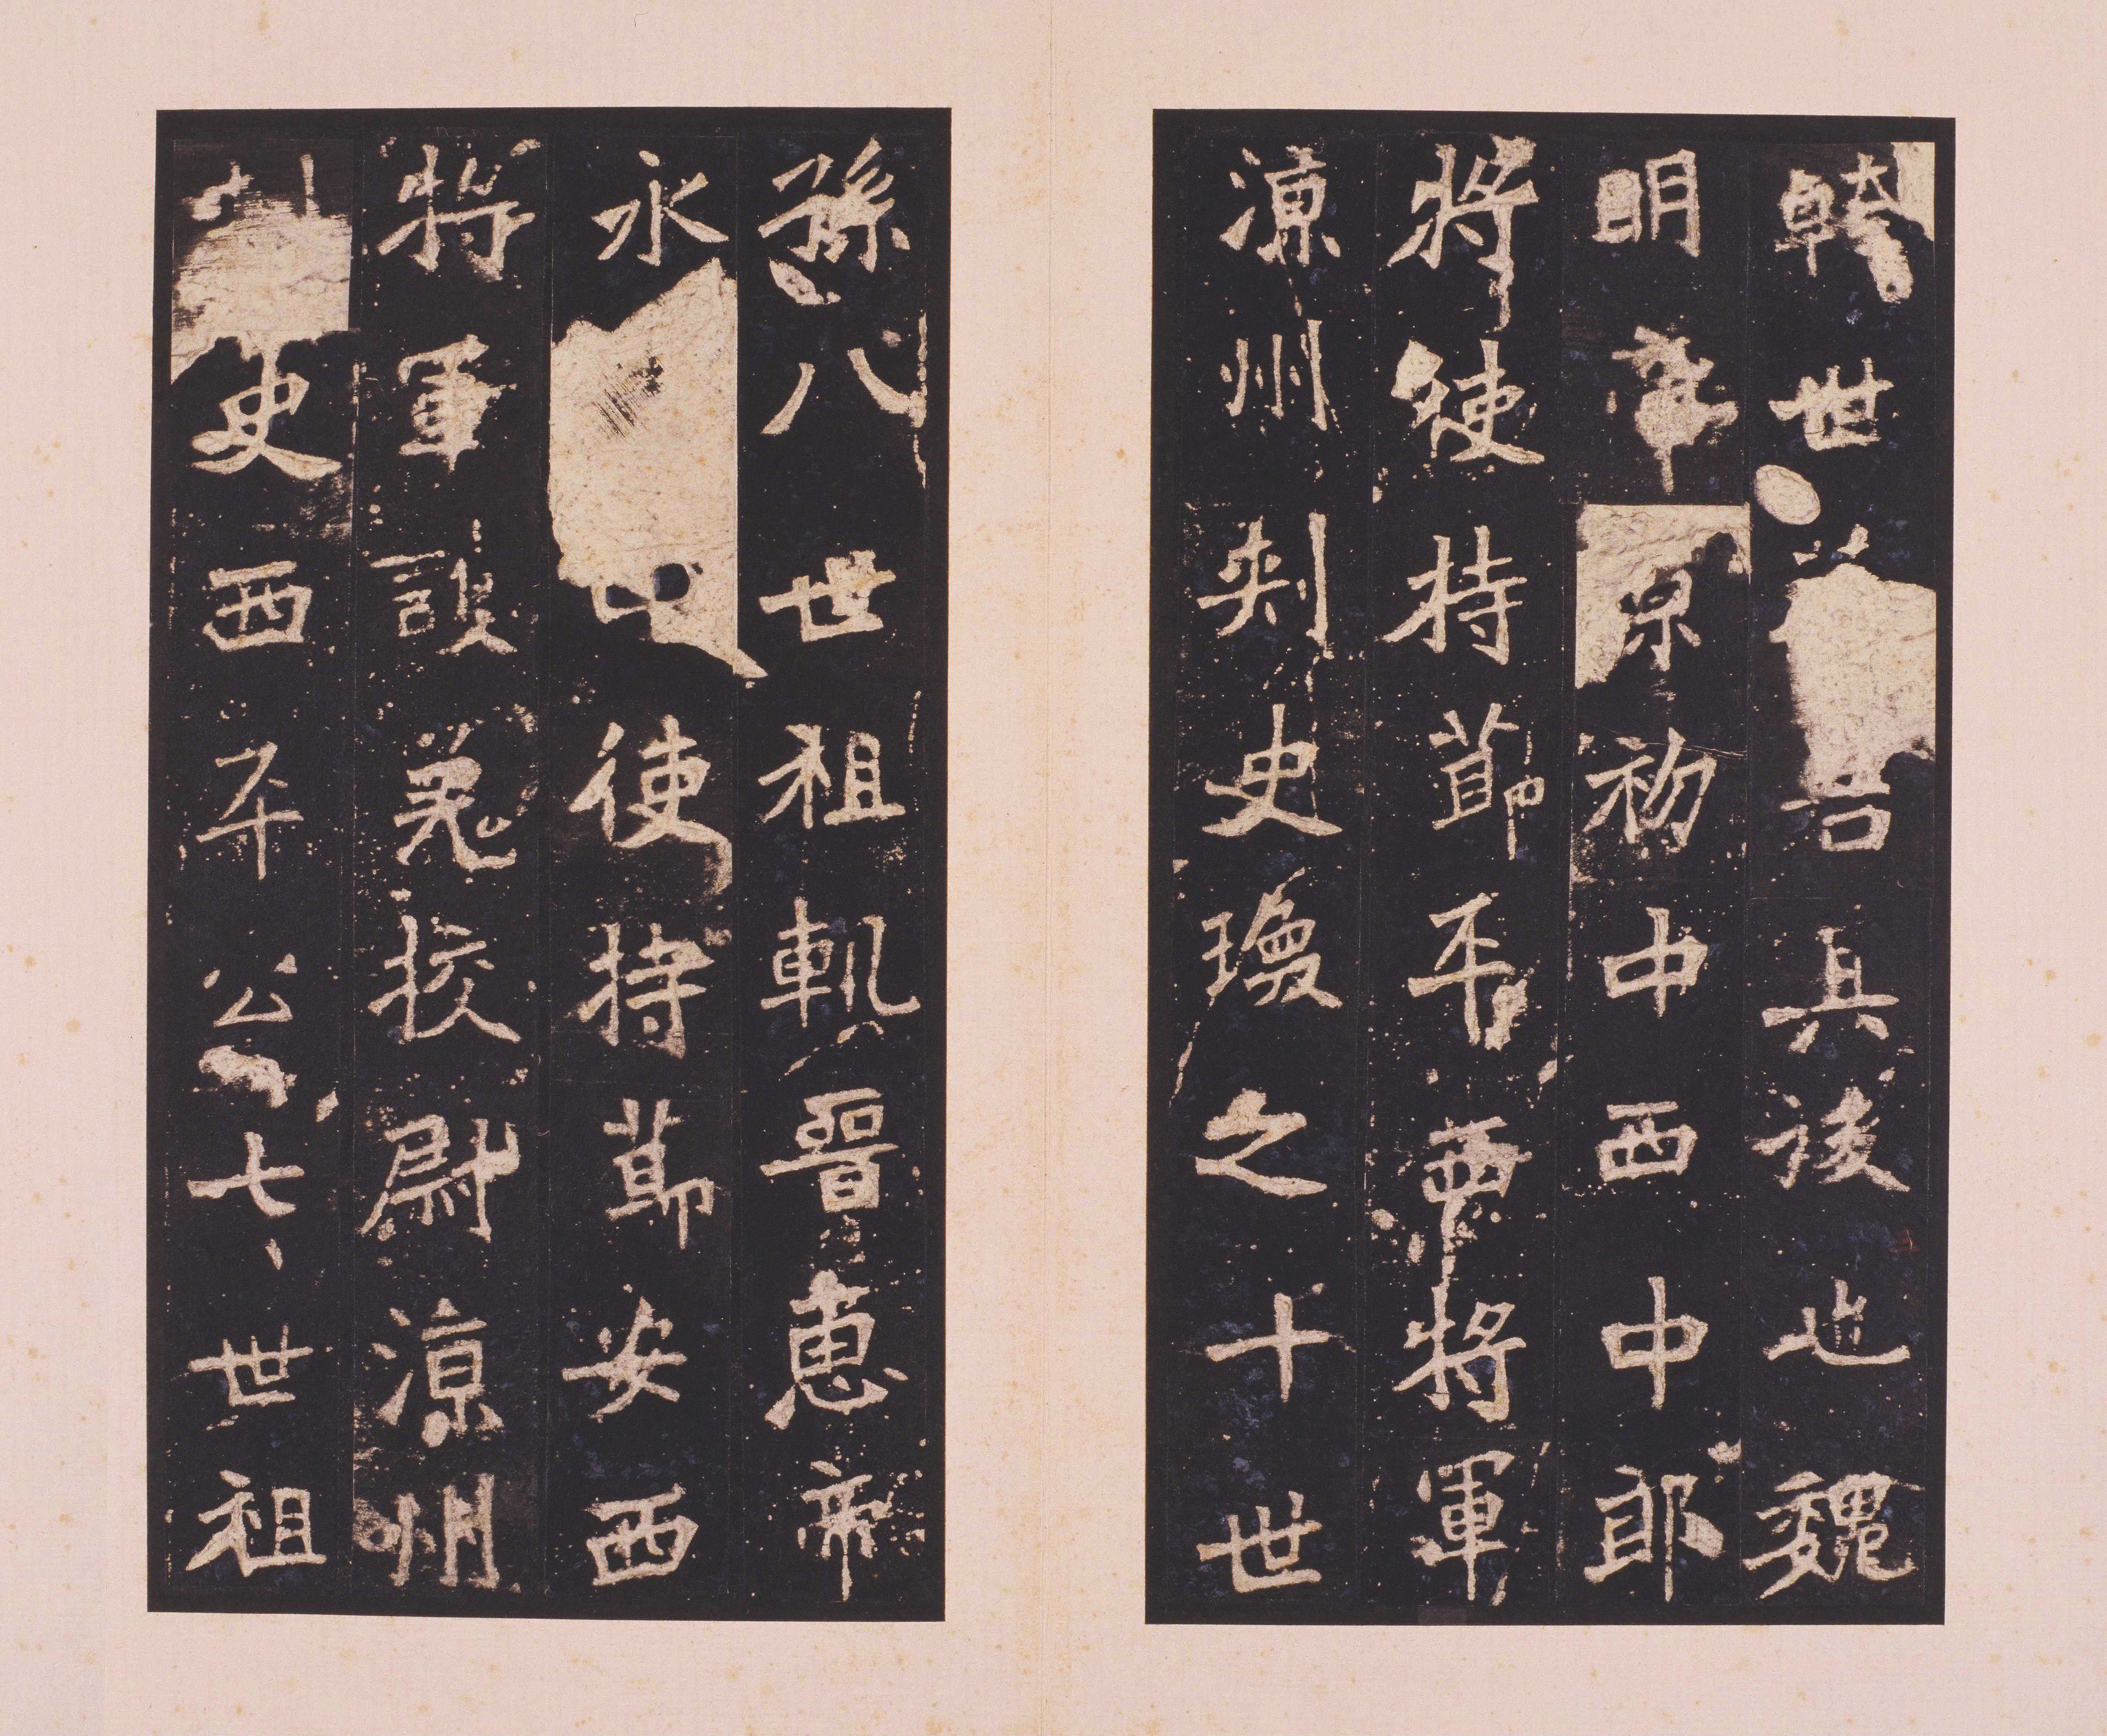 世君其後也魏
明帝景初中西中郎
將使持節平西將軍
涼州刺史瑍之十世
孫八世祖軌晉惠帝
永中使持節安西
將軍護羌校尉涼州
史西平公七世祖